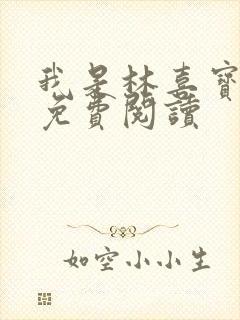 我是林喜寶
免費閱讀
如空小小生